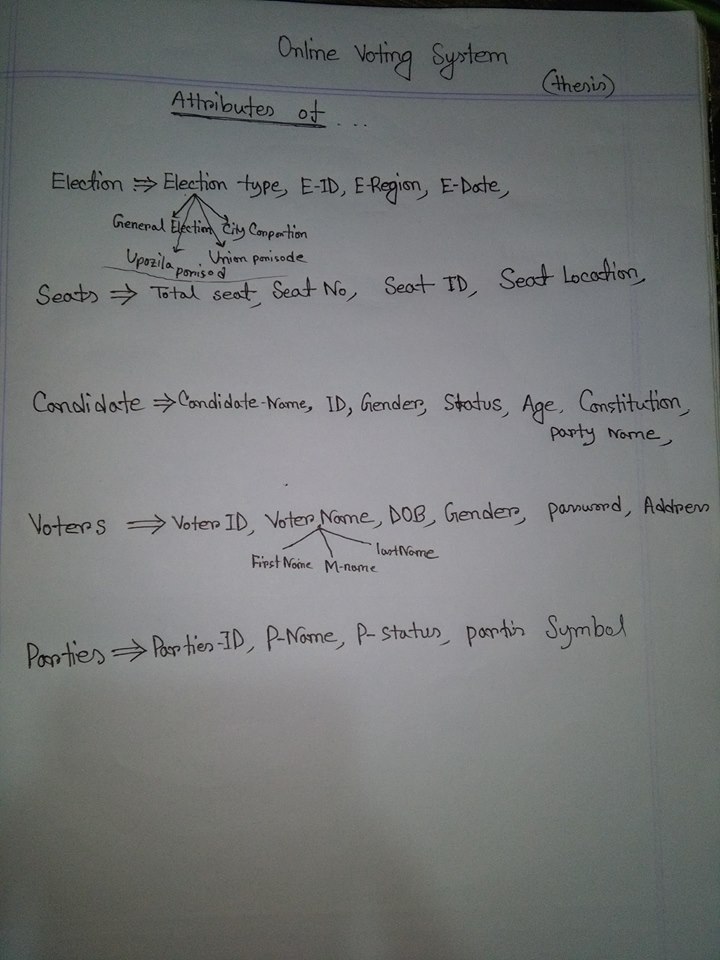 Online Voting System
(thesis)
Attributes of ...
Election ⇒ Election type, E-ID, E-Region, E-Date,
General Election City Corportion
Upozila ponisod Union ponisode
Seats ⇒ Total seat, Seat No, Seat ID, Seat Location,
Candidate ⇒ Candidate-Name, ID, Gender, Status, Age, Constitution,
party Name,
Voters ⇒ Voter ID, Voter Name, DOB, Gender, password, Address
First Name M-name lastName
Parties ⇒ Parties-ID, P-Name, P-status, partis Symbol